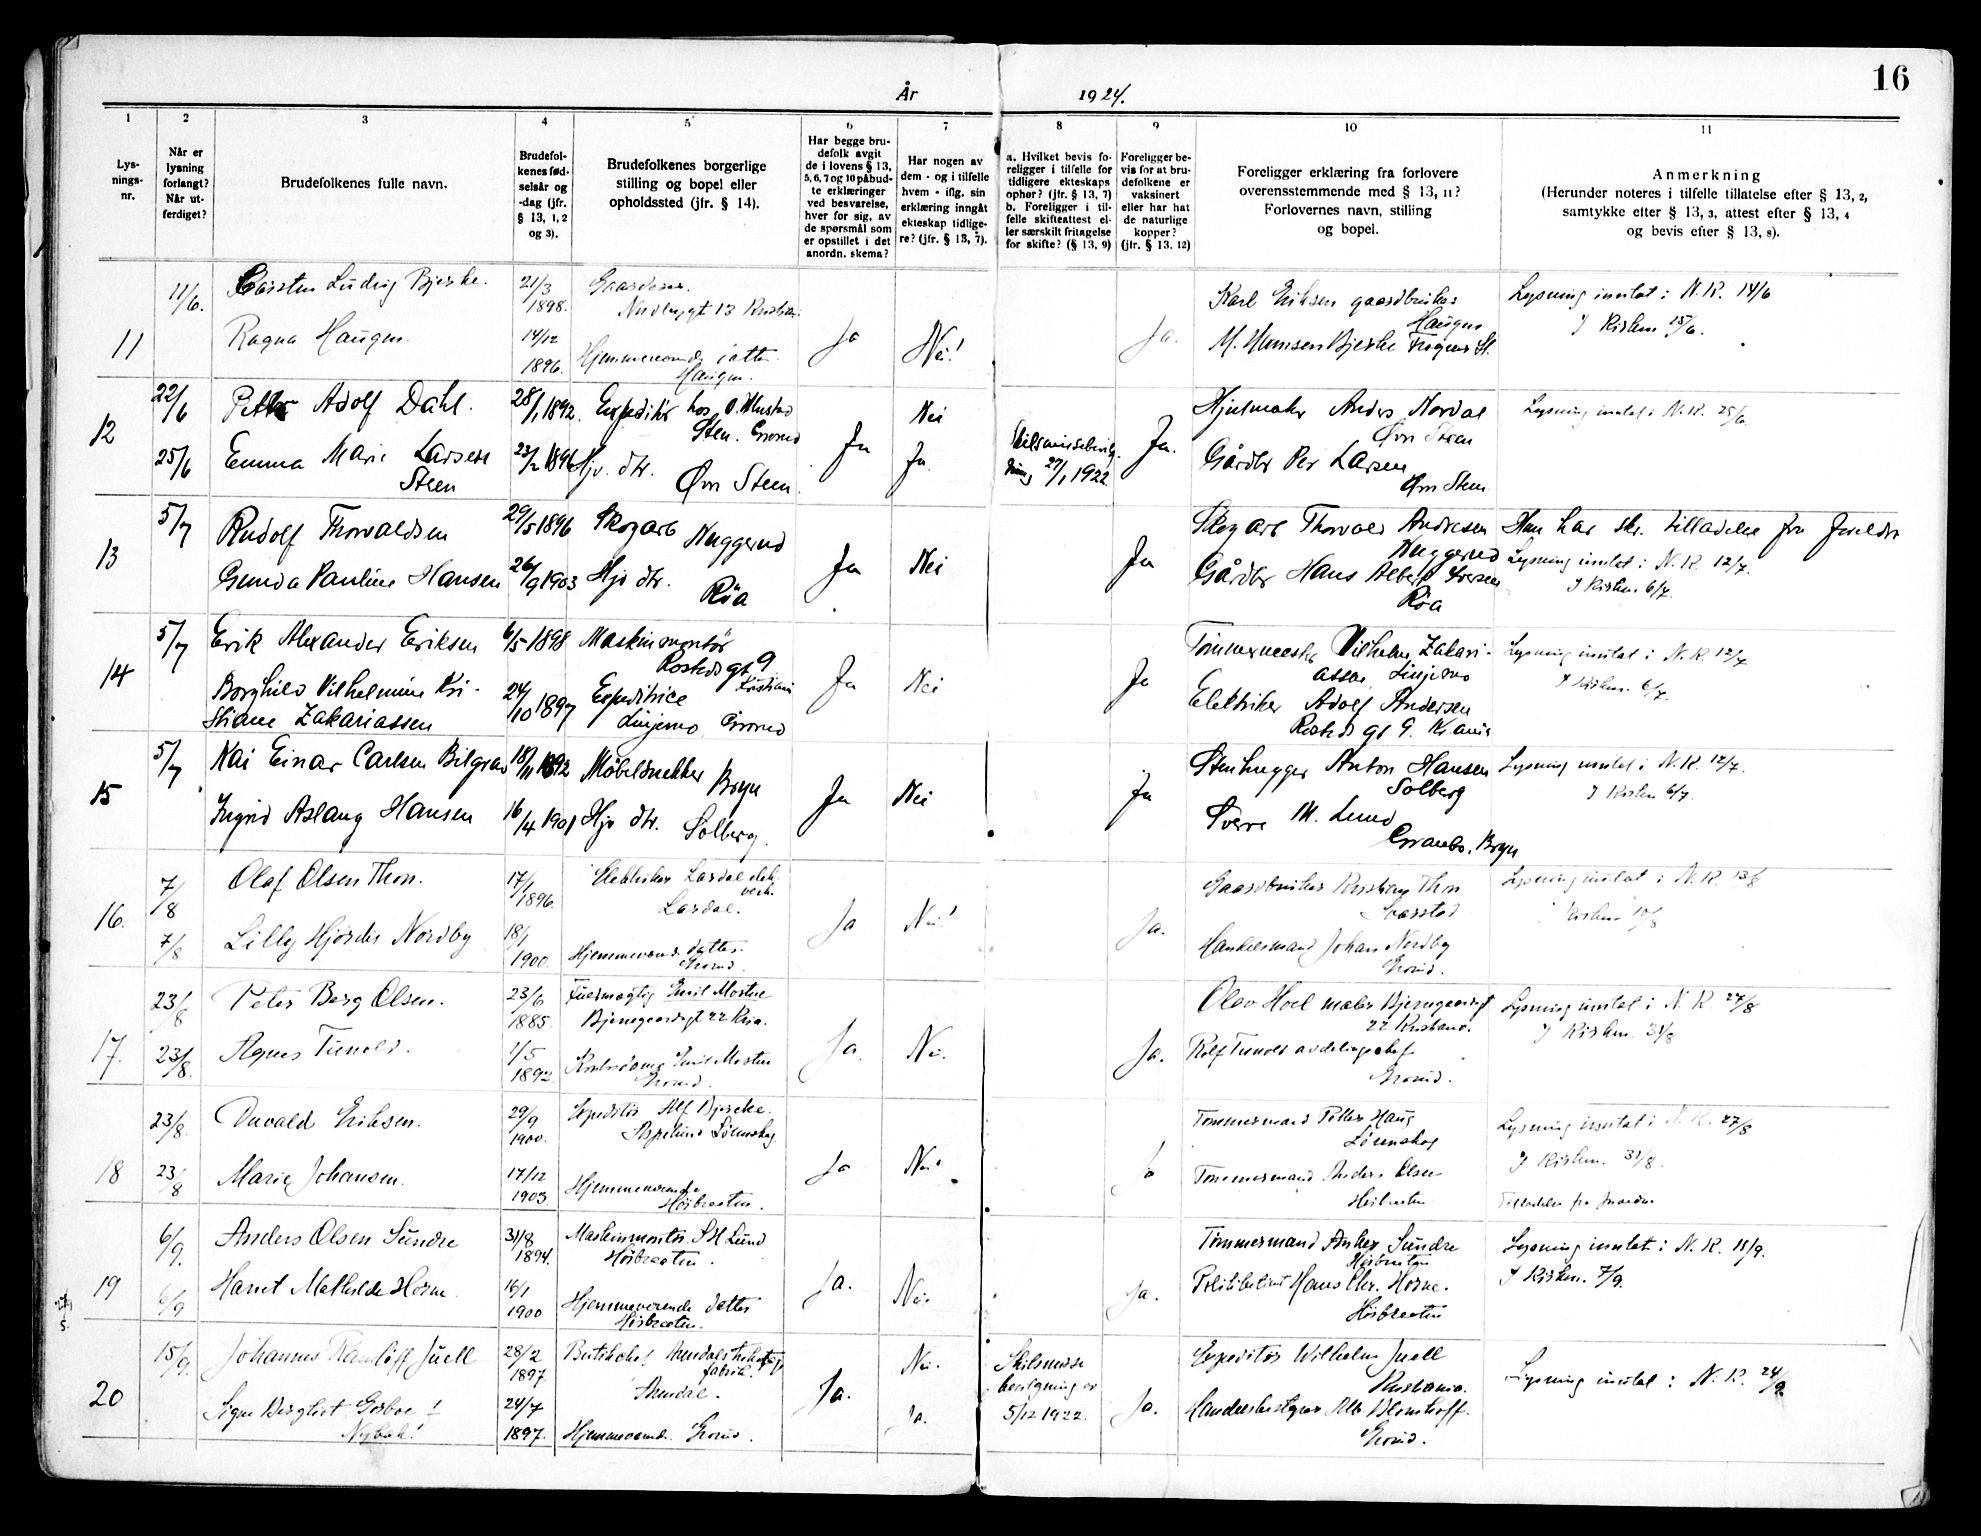 16
År 1924.
1 2 3 4 5 6 7 8 9 10 11
Lys-
nings-
nr.
Når er
lysning
forlangt?
Når ut-
ferdiget?
Brudefolkenes fulle navn.
Brudefol-
kenes fød-
selsår og
-dag (jfr.
§ 13, 1, 2
og 3).
Brudefolkenes borgerlige
stilling og bopel eller
opholdssted (jfr. § 14).
Har begge bru-
defolk avgit
de i lovens § 13,
5, 6, 7 og 10 påbud-
te erklæringer
ved besvarelse,
hver for sig, av
de spørsmål som
er opstillet i det
anordn. skema?
Har nogen av
dem - og i tilfelle
hvem - iflg. sin
erklæring inngåt
ekteskap tidlige-
re? (jfr. § 13, 7).
a. Hvilket bevis fo-
religger i tilfelle for
tidligere ekteskaps
ophør? (jfr. § 13, 7)
b. Foreligger i til-
felle skifteattest el-
ler særskilt fritagelse
for skifte? (§ 13, 9)
Foreligger be-
vis for at bru-
defolkene er
vaksinert
eller har hat
de naturlige
kopper?
(jfr. § 13, 12)
Foreligger erklæring fra forlovere
overensstemmende med § 13, 11?
Forlovernes navn, stilling
og bopel.
Anmerkning
(Herunder noteres i tilfelle tillatelse efter § 13, 2,
samtykke efter § 13, 3, attest efter § 13, 4
og bevis efter § 13, 8).
11
11/6.
Karsten Ludvig Bjerke.
21/3
1898.
Ragna Haugen.
14/12
1896.
Hjemmeværende datter
Haugen.
Ja
Nei!
Ja.
Karl Eriksen gaardbruker
Haugen
M. Hansen Bjerke
Lysning inntat i N. R. 14/6
I Kirken 15/6.
12
22/6
Petter Adolf Dahl.
28/1 1892.
Expeditør hos O. Mustad
Sten. Grorud
25/6
Emma Marie Larsen
Steen
23/2 1896
Hjv. dtr.
Øvn Steen.
Ja
Nei
Ja.
27/1 1922
Ja.
Hjulmaker Anders Nordal
Øvn Steen
Gårdbr Per Larsen
Øvn Steen
Lysning inntat i N. R. 25/6.
13
5/7
Rudolf Thorvaldsen
29/5 1896
Skogarb Nuggerud
Gunda Pauline Hansen
26/9 1903
Hjv dtr.
Røa
Ja
Nei
Ja
Skogarb Thorvald Andresen
Nuggerud
Gårdbr Hans Albert Iversen
Røa
Hun har skr. tilladelse fra foreldre
Lysning inntat i N. R. 12/7.
I Kirken 6/7.
14
5/7
Erik Alexander Eriksen
6/5-1898
Maskinmontør
Rosteds gt 9
Kristiania
Borghild Vilhelmine Kri-
stiane Zakariassen
24/10 1897
Expeditrice
Linjemo, Grorud
Ja
Nei
Ja
Tømmermester Vilhelm Zakari-
assen, Linjemo
Elektriker Adolf Andersen
Rosteds gt 9. Kr.ania
Lysning inntat i N. R. 12/7
I Kirken. 6/7.
15
5/7
Kai Einar Carlsen Bilgrav
18/11 1892
Møbelsnekker
Bryn
Ingrid Aslaug Hansen
16/4 1901
Hjv dtr.
Solberg.
Ja
Nei
Ja
Stenhugger Anton Hansen
Solberg
Sverre M. Lund
Granbo. Bryn
Lysning inntat i N. R. 12/7.
I Kirken 6/7.
16.
7/8
Olaf Olsen Thon.
17/1
1896.
Elektriker Lardal elek.
verk.
Lardal.
7/8
Lilly Hjørdis Nordby
18/1
1900.
Hjemmevær. datter.
Grorud.
Ja
Nei!
Ja.
Gaardbruker Kristian Thon
Svarstad
Handelsmand Johan Nordby
Grorud.
Lysning inntat i N. R. 13/8
Kirken 10/8
17.
23/8
Peter Berg Olsen.
23/6
1885.
Bjerregaardsgt 22 Kria.
23/8.
Agnes Tunold.
1/5
1892.
Kontordame Emil Mostue
Grorud.
Ja.
Nei.
Ja.
Olav Hoel maler Bjerregaardsgt
22 Kristiania.
Rolf Tunold avdelingschef
Grorud.
Lysning inntat i N. R. 27/8
I Kirken. 31/8
18
23/8.
Eriksen.
29/9
1900.
Expeditør Alf Bjercke.
Aspelund Lørenskog
23/8
Marie Johansen.
17/12
1903
Hjemmeværende
Høibraaten.
Ja
Nei!
Ja
Tømmermand Petter Haug
Lørenskog
Tømmermand Anders Olsen
Høibraaten
Lysning inntat i N. R. 27/8
I Kirken. 31/8.
19
6/9.
Anders Olsen Sundre
31/8
1894.
Maskinmontør S H Lund
Høibraaten.
6/9
Harriet Mathilde Horne.
16/1
1900
Hjemmeværende datter
Høibraaten.
Ja.
Nei.
Ja.
Tømmermand Anker Sundre
Høibraaten
Politibetjent Hans Chr. Horne.
Høibraaten
Lysning inntat i N. R. 11/9.
I Kirken. 7/9.
20
15/9.
Johannes Juell
28/2
1897.
Butikchef Arendals
fabrik.
Arendal.
24/7
1897.
Hjemmevær. Grorud.
Ja.
Nei.
Ja.
Skilsmisse
bevilgning av
5/12 1922.
Ja.
Expeditør Wilhelm Juell
Kristiania.
Handelsbestyrer Alb Blomhoff.
Grorud.
Lysning inntat i N. R. 24/9